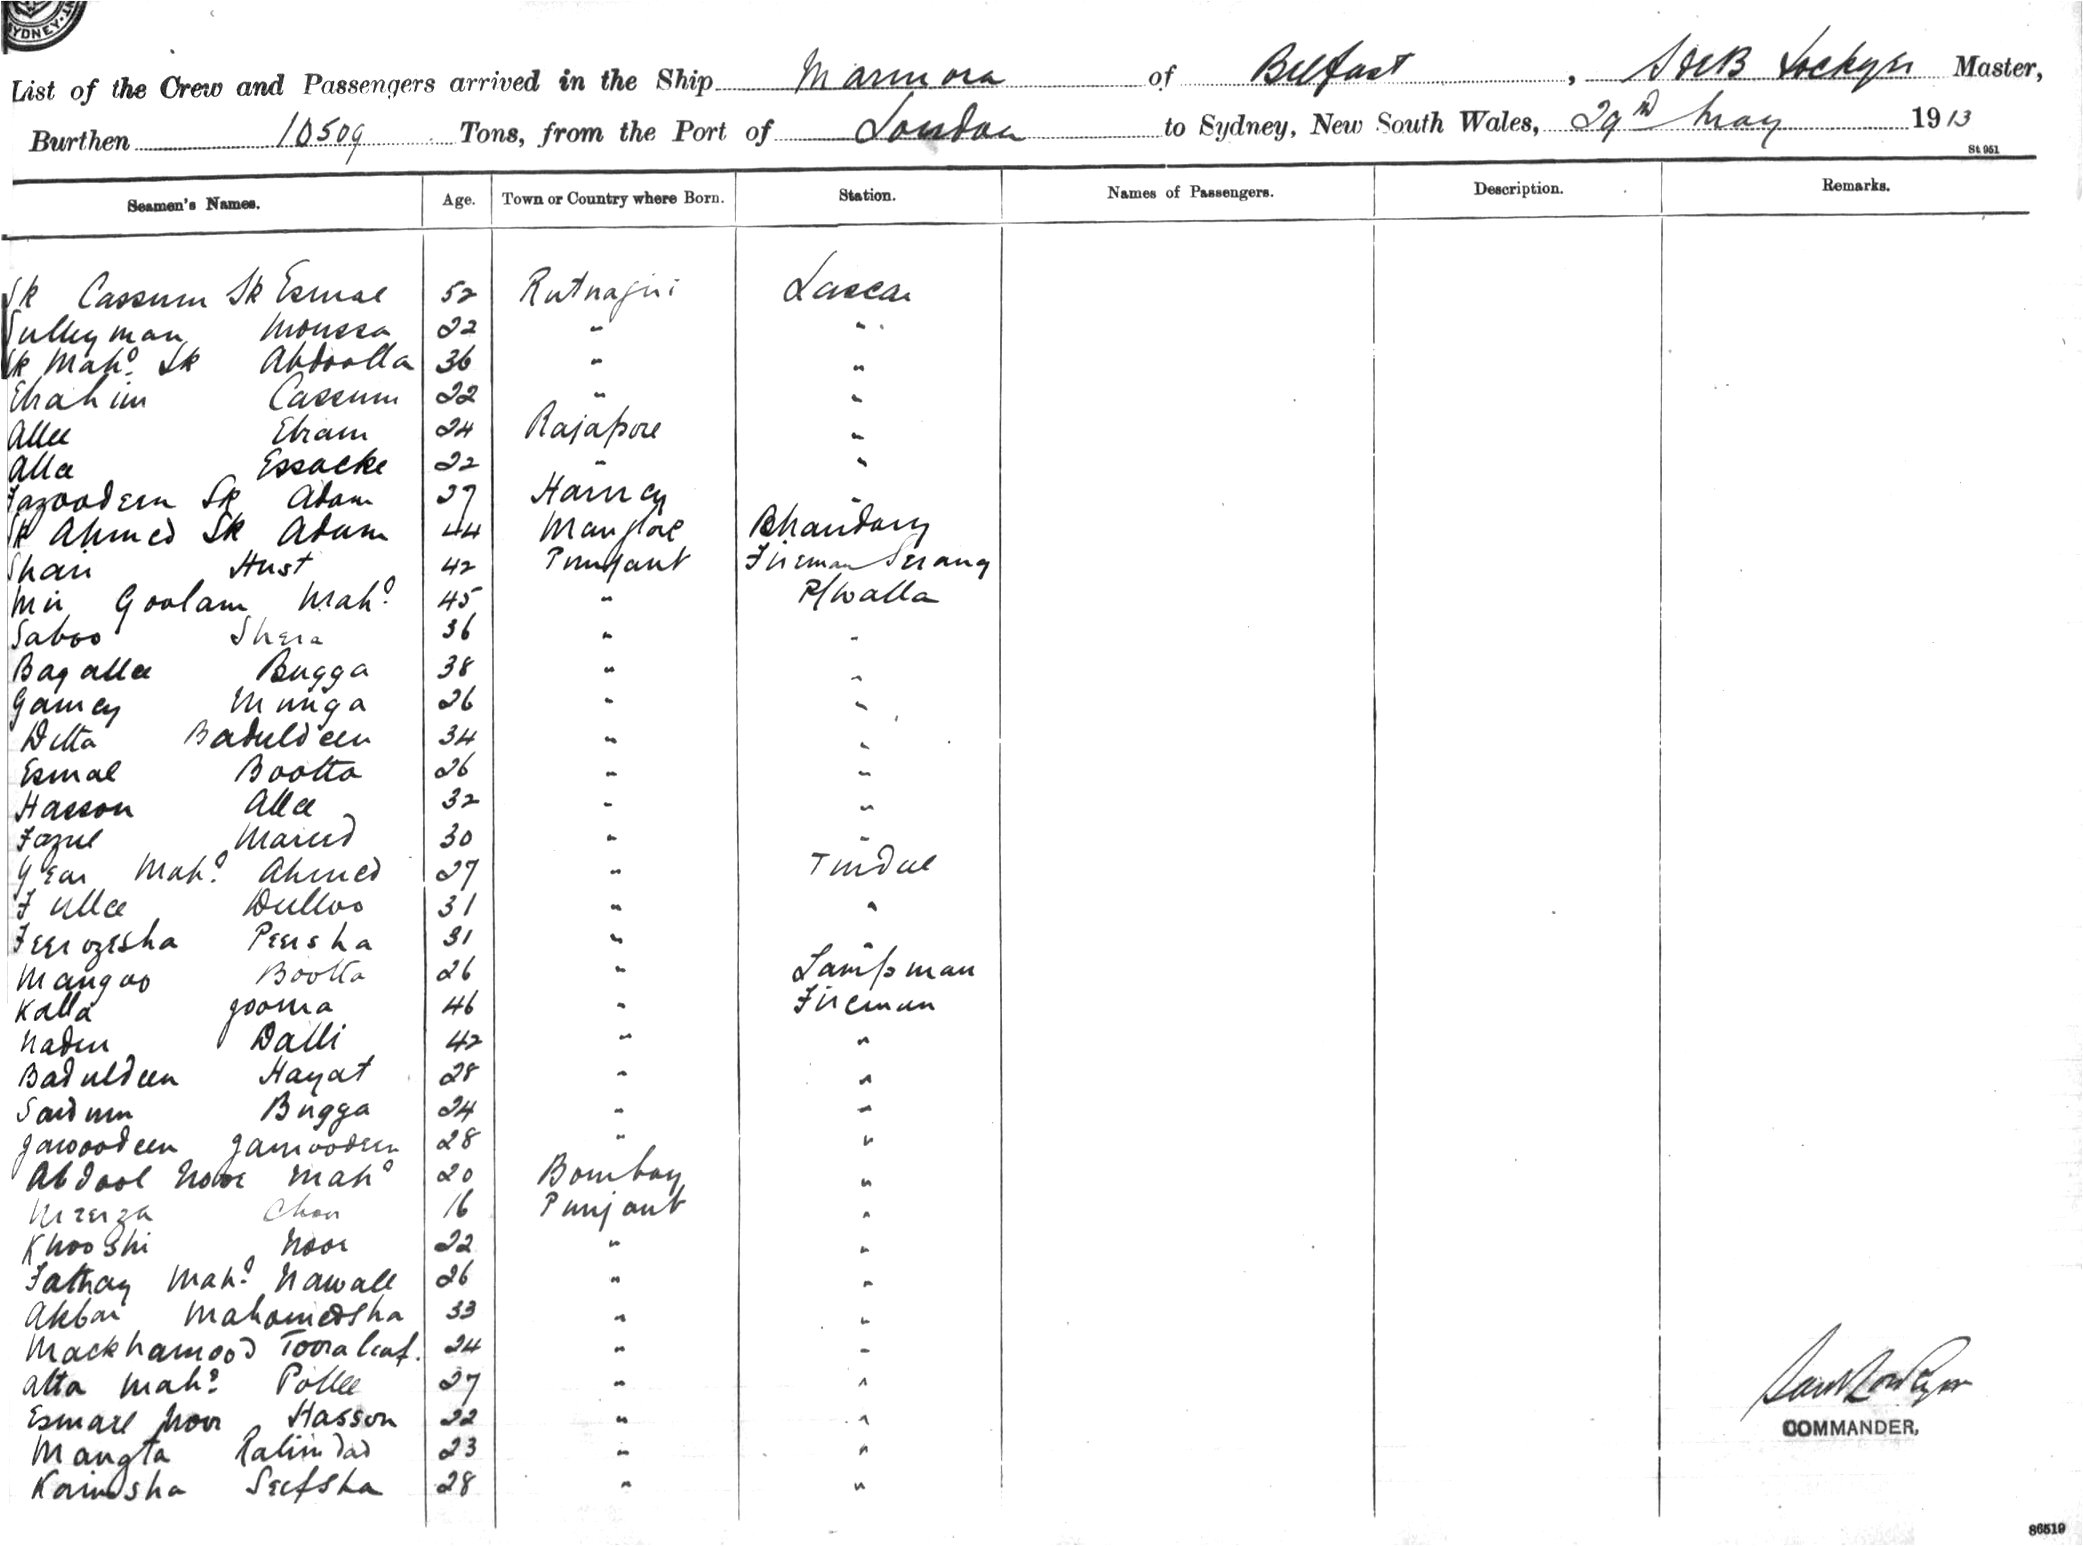 SYDNEY
List of the Crew and Passengers arrived in the Ship Marmora of Belfast, Lockyer Master,
Burthen 10509 Tons, from the Port of London to Sydney, New South Wales, 29th May 1913
St 951
Seamen's Names. Age. Town or Country where Born. Station. Names of Passengers. Description. Remarks.
Sk Cassum Sk Esmal 52 Rutnagiri Lascar
Sulleyman Moussa 22 " "
Sk Mahd. Sk Abdoolla 36 " "
Ebrahim Cassum 22 " "
Allee Ebram 24 Rajapore "
Allee Essacke 22 " "
Fazoodeen Sk Adam 27 Harney "
Sk Ahmed Sk Adam 44 Manglore Bhandary
Hust 42 Punjaub Fireman Serang
Mir Goolam Mahd. 45 " P/Walla
Saboo Shera 36 " "
Bagallee Bugga 38 " "
Gamey Munga 26 " "
Ditta Baduldeen 34 " "
Esmal Bootta 26 " "
Hasson Allee 32 " "
Fazul 30 " "
Mahd. Ahmed 27 " Tindal
Fullee Dulloo 31 " "
Feerozesha Peersha 31 " "
Mangoo Bootta 26 " Lampman
Kalla Jooma 46 " Fireman
Nadir Dalli 42 " "
Baduldeen Hayat 28 " "
Bugga 24 " "
Jawoodeen Jamoodeen 28 " "
Abdool Noor Mahd 20 Bombay "
Meerza 16 Punjaub "
Khooshi Noor 22 " "
Fathay Mahd. Nawall 26 " "
Akbar Mahomedsha 33 " "
Mackhamood 24 " "
Atta Mahd. 27 " "
Esmail Noor Hasson 22 " "
Mangta Ralimdad 23 " "
Karimsha Seefsha 28 " "
COMMANDER,
86519